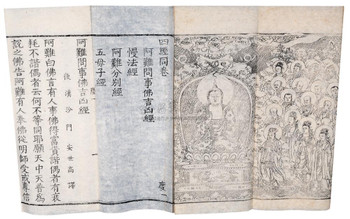 四經同卷　慶
阿難問事佛吉凶經
慢法經
阿難分別經
五母子經
阿難問事佛吉凶經
後漢沙門安世高譯
阿難白佛言有人事佛得富貴諧偶者有衰
耗不諧偶者云何不等同耶願天中天普爲
說之佛告阿難有人奉佛從明師受戒專信